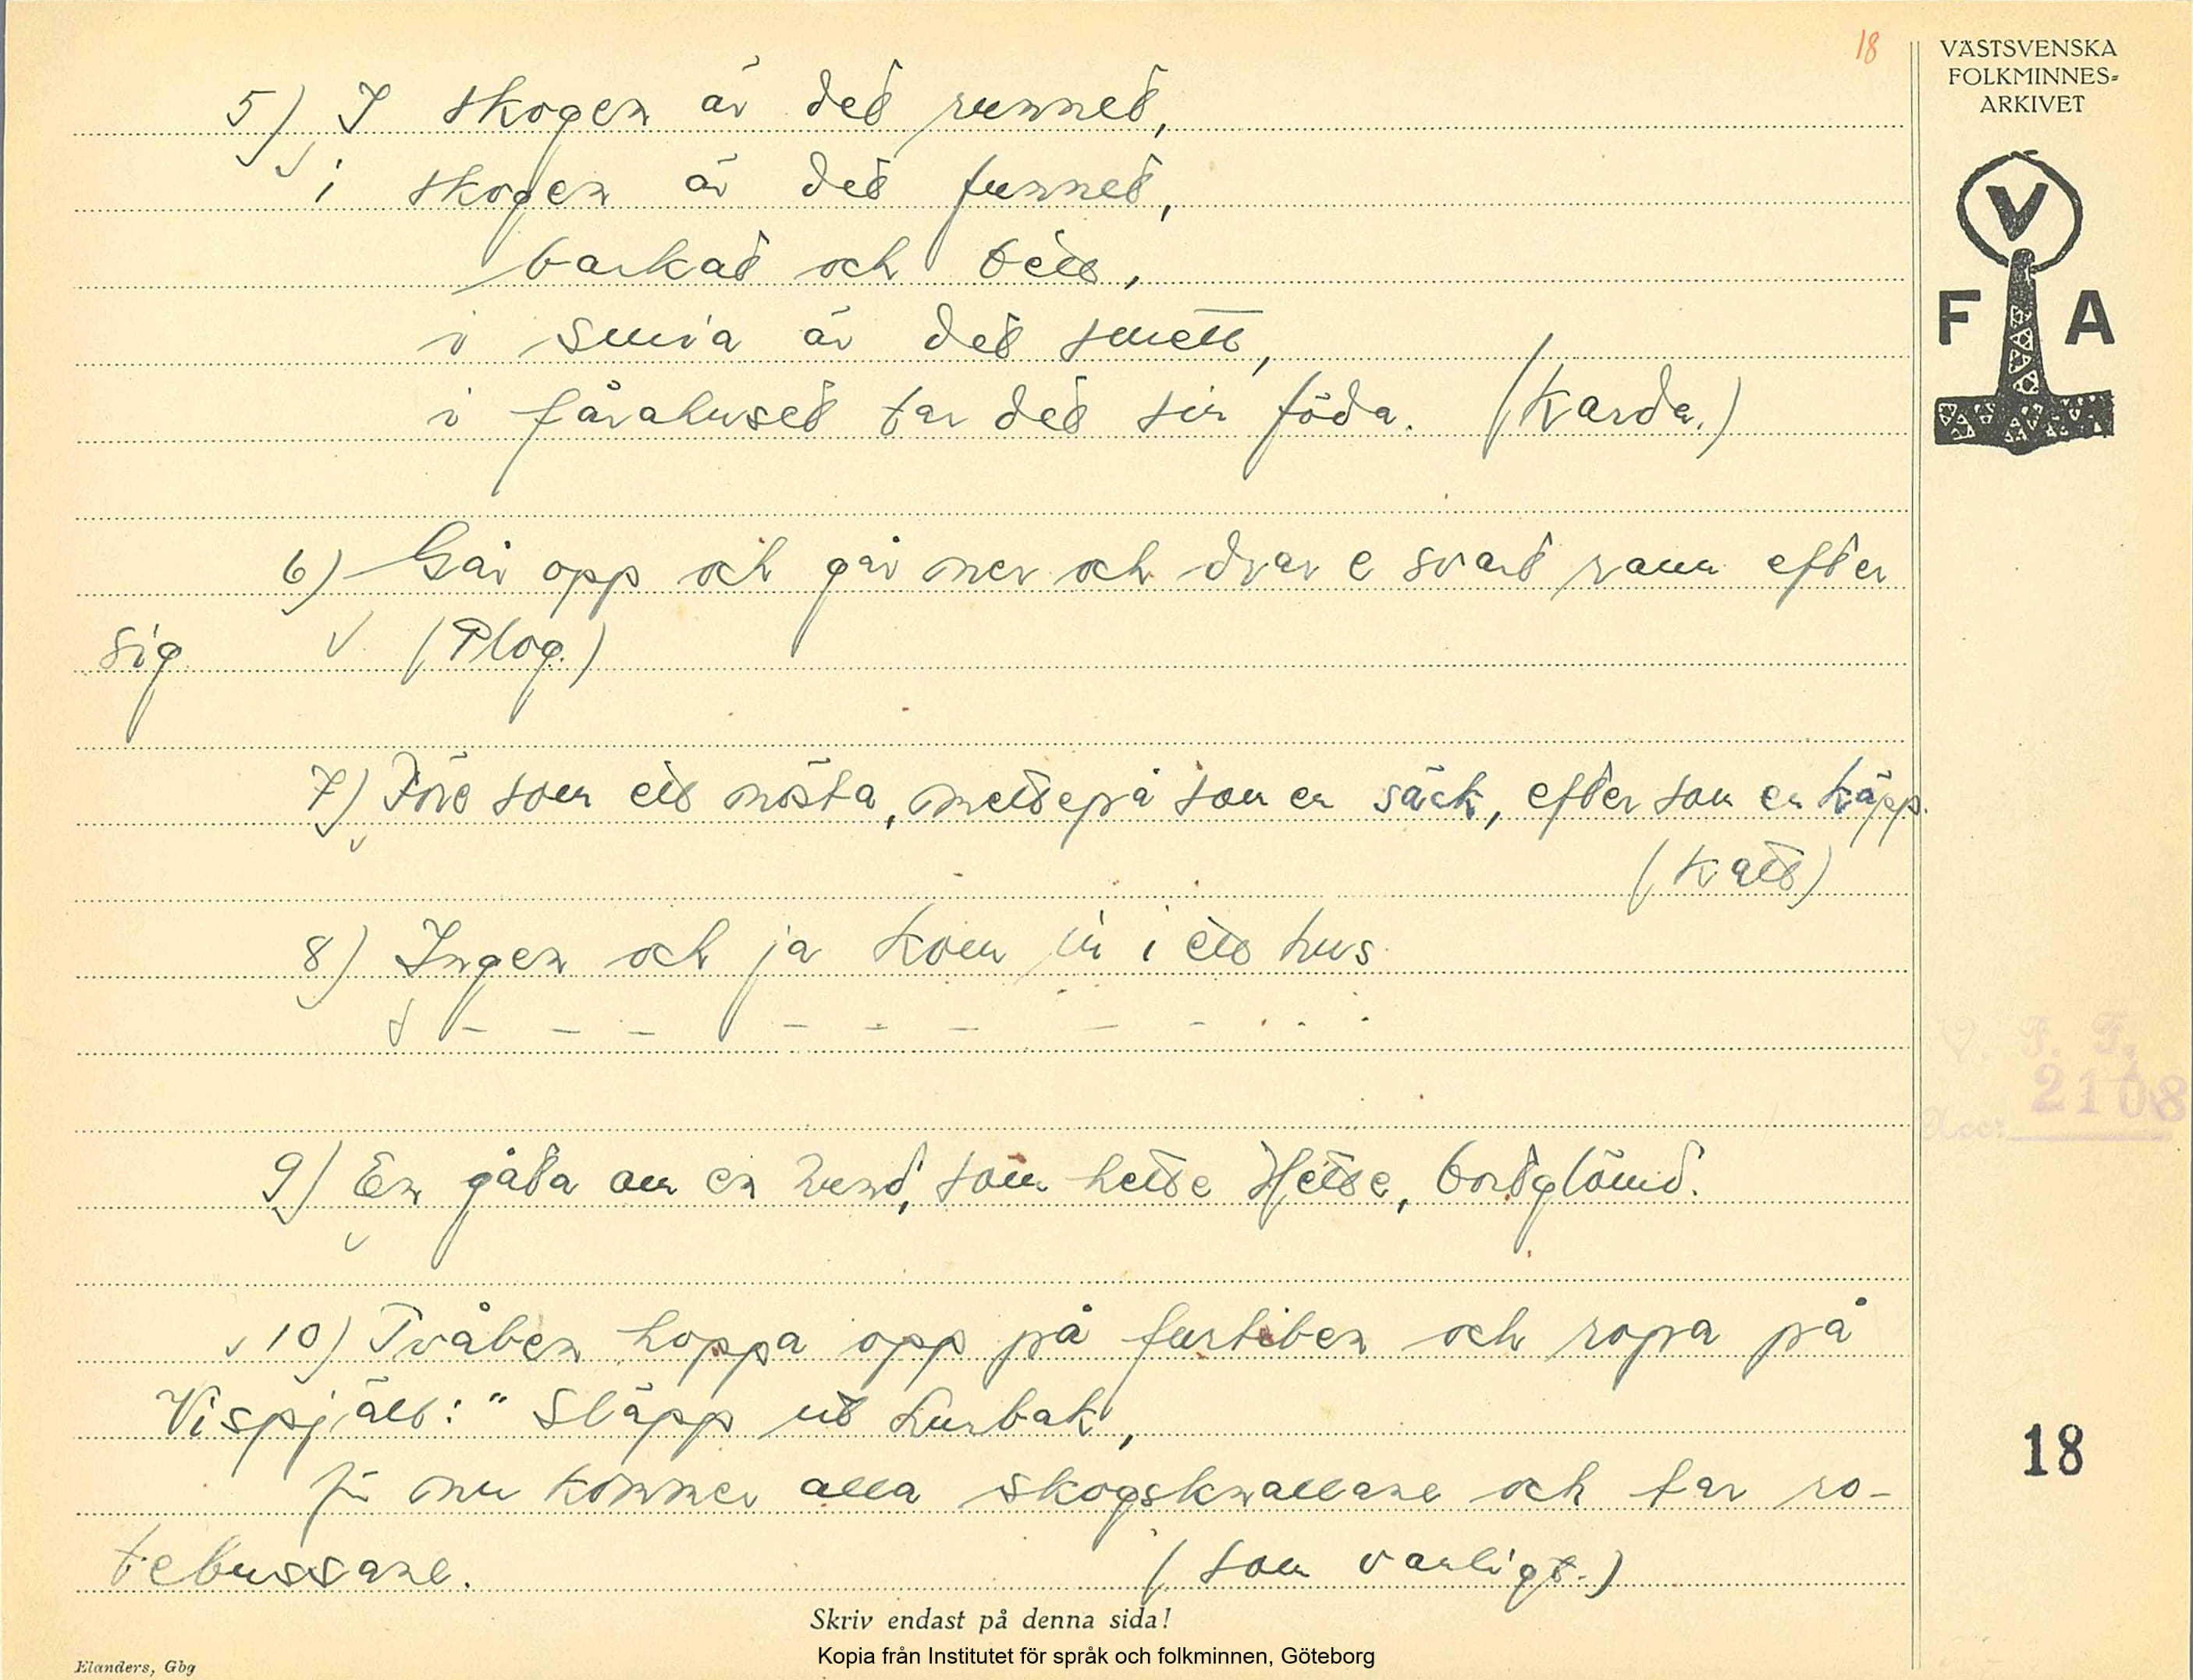 18
VÄSTSVENSKA
FOLKMINNES=
ARKIVET
V
F A
5) I skogen är det runnet,
i skogen är det funnet,
barkat och bett,
i smia är det smett,
i fårahuset tar det sin föda. (Karda.)
6) Går opp och går ner och drar e svart rann efter
sig (Plog.)
7) Före som ett nösta, mettepå som en säck, efter som en käpp.
(Katt)
8) Ingen och ja kom in i ett hus
9) En gåta om en hund, som hette Hette, bortglömd.
10) Tvåben hoppa opp på furtiben och ropa på
Vispjält: "Släpp ut Lurbak,
för nu kommer alla skogsknallane och tar ro-
tebussane. (som vanligt.)
V. F. F.
Acc: 2108
18
Skriv endast på denna sida!
Kopia från Institutet för språk och folkminnen, Göteborg
Elanders, Gbg